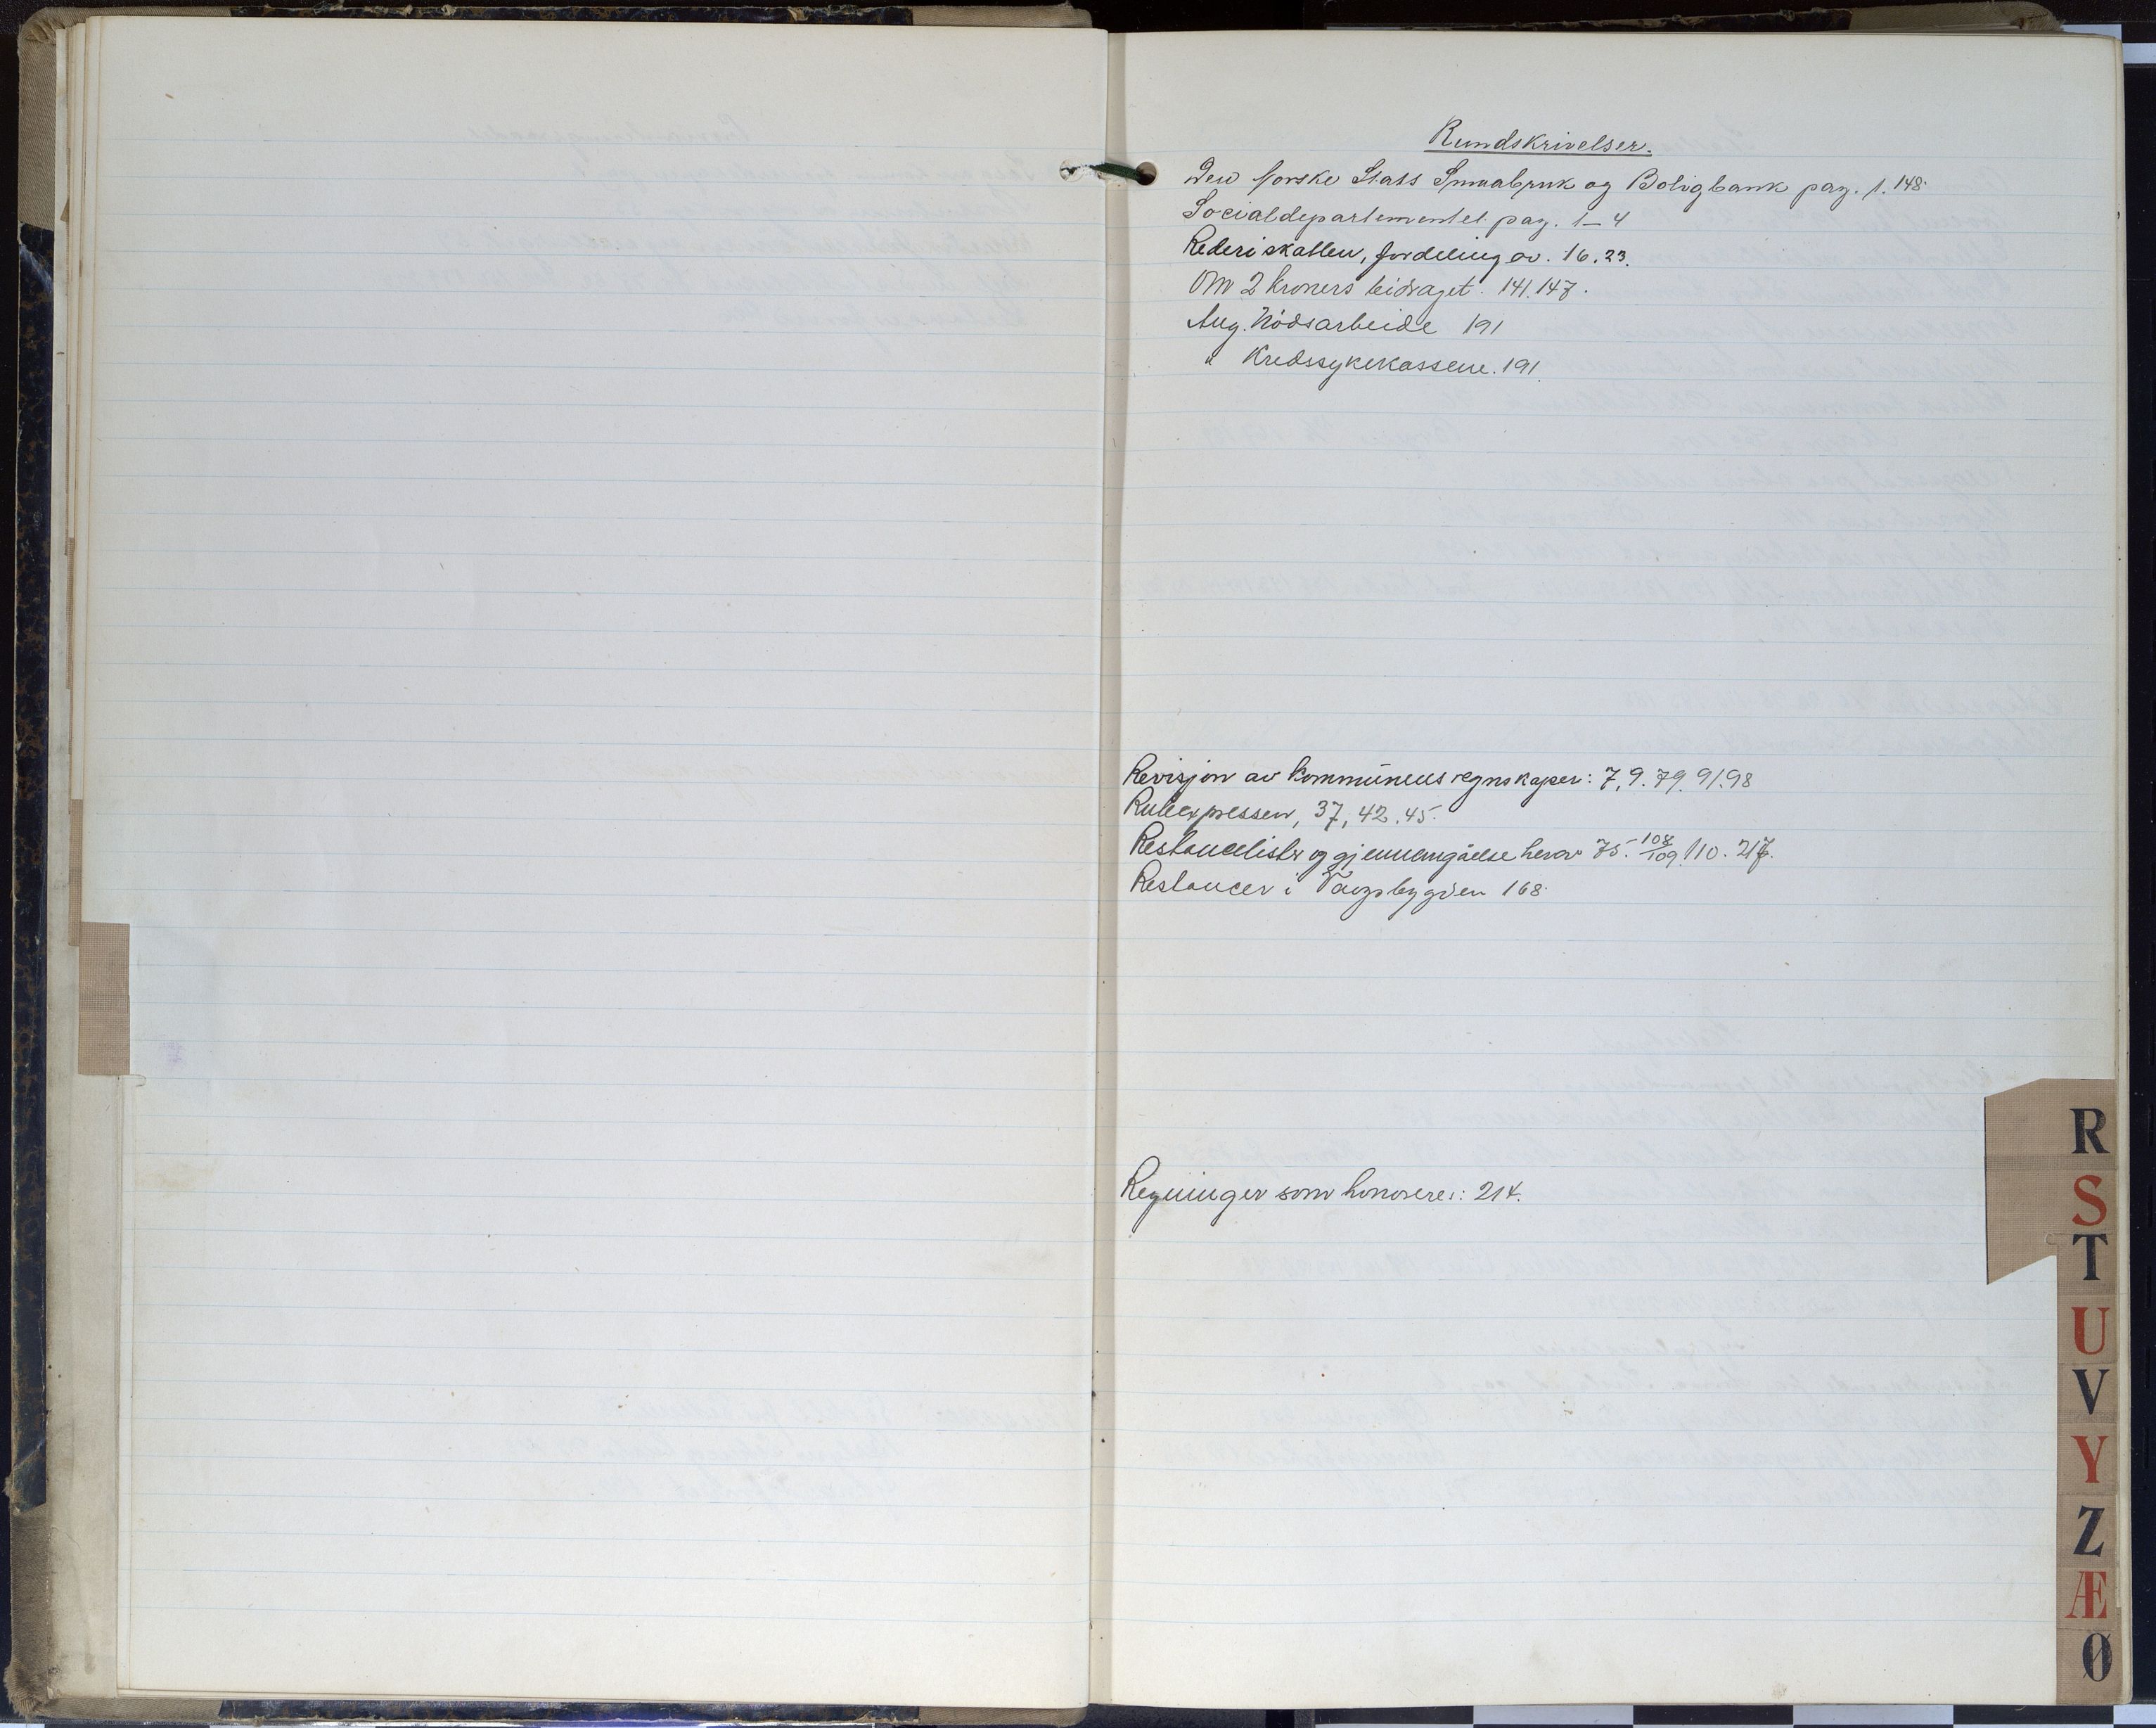 Rundskrivelser.
Den norske Stats Smaabruk og Boligbank pag. 1. 148.
Socialdepartementet pag. 1-4
Rederiskatten, fordeling av. 16. 23.
Om 2 Kroners bidraget. 141. 147.
Ang. Nödsarbeide 191
" Kredssykekassene. 191.
Revisjon av kommunens regnskaper: 7, 9. 79. 91. 98
Ruteexpressen, 37, 42. 45.
Restancelister og gjennemgåelse herav 75. 108/109. 110. 217.
Restancer i bygden 168.
Regninger som honoreres: 214.
R
S
T
U
V
Y
Z
Æ
Ø